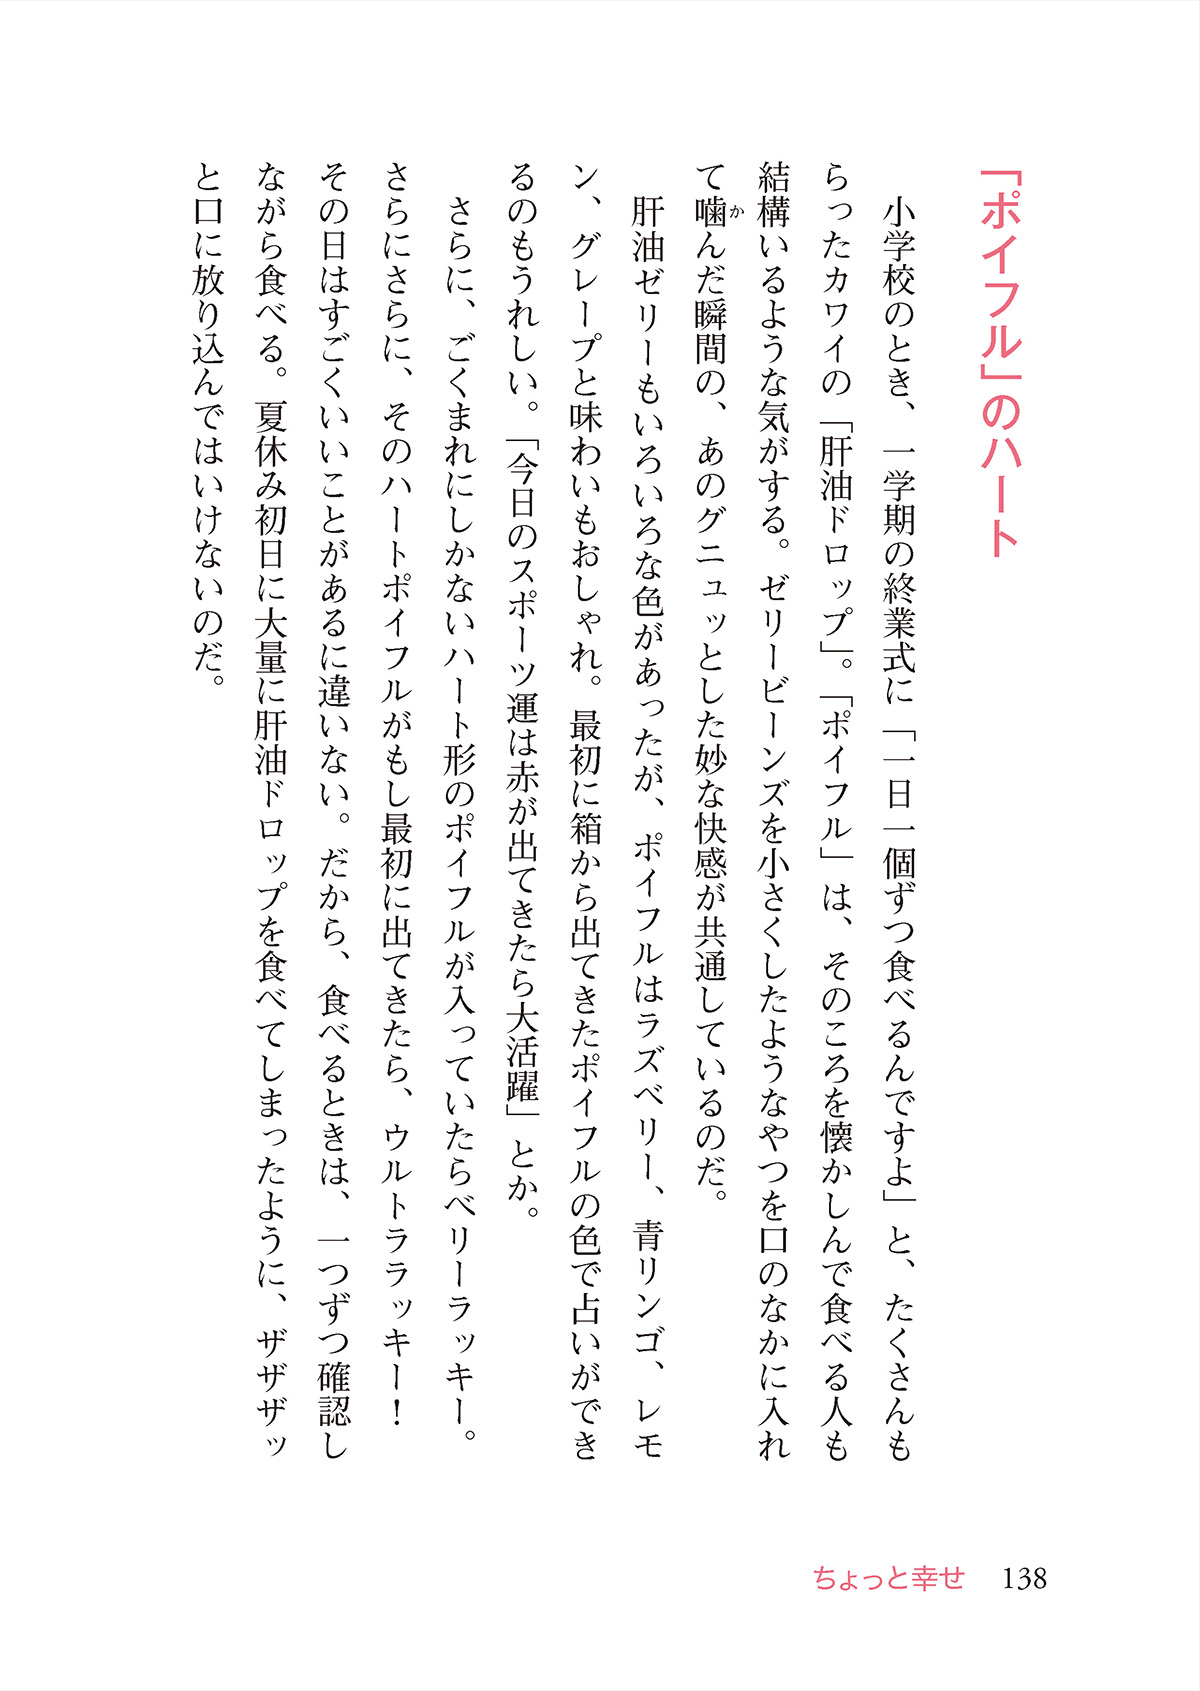 「ポイフル」のハート
小学校のとき、一学期の終業式に「一日一個ずつ食べるんですよ」と、たくさんも
らったカワイの「肝油ドロップ」。「ポイフル」は、そのころを懐かしんで食べる人も
結構いるような気がする。ゼリービーンズを小さくしたようなやつを口のなかに入れ
て噛んだ瞬間の、あのグニュッとした妙な快感が共通しているのだ。
か
肝油ゼリーもいろいろな色があったが、ポイフルはラズベリー、青リンゴ、レモ
ン、グレープと味わいもおしゃれ。最初に箱から出てきたポイフルの色で占いができ
るのもうれしい。「今日のスポーツ運は赤が出てきたら大活躍」とか。
さらに、ごくまれにしかないハート形のポイフルが入っていたらベリーラッキー。
さらにさらに、そのハートポイフルがもし最初に出てきたら、ウルトララッキー！
その日はすごくいいことがあるに違いない。だから、食べるときは、一つずつ確認し
ながら食べる。夏休み初日に大量に肝油ドロップを食べてしまったように、ザザザッ
と口に放り込んではいけないのだ。
ちょっと幸せ 138